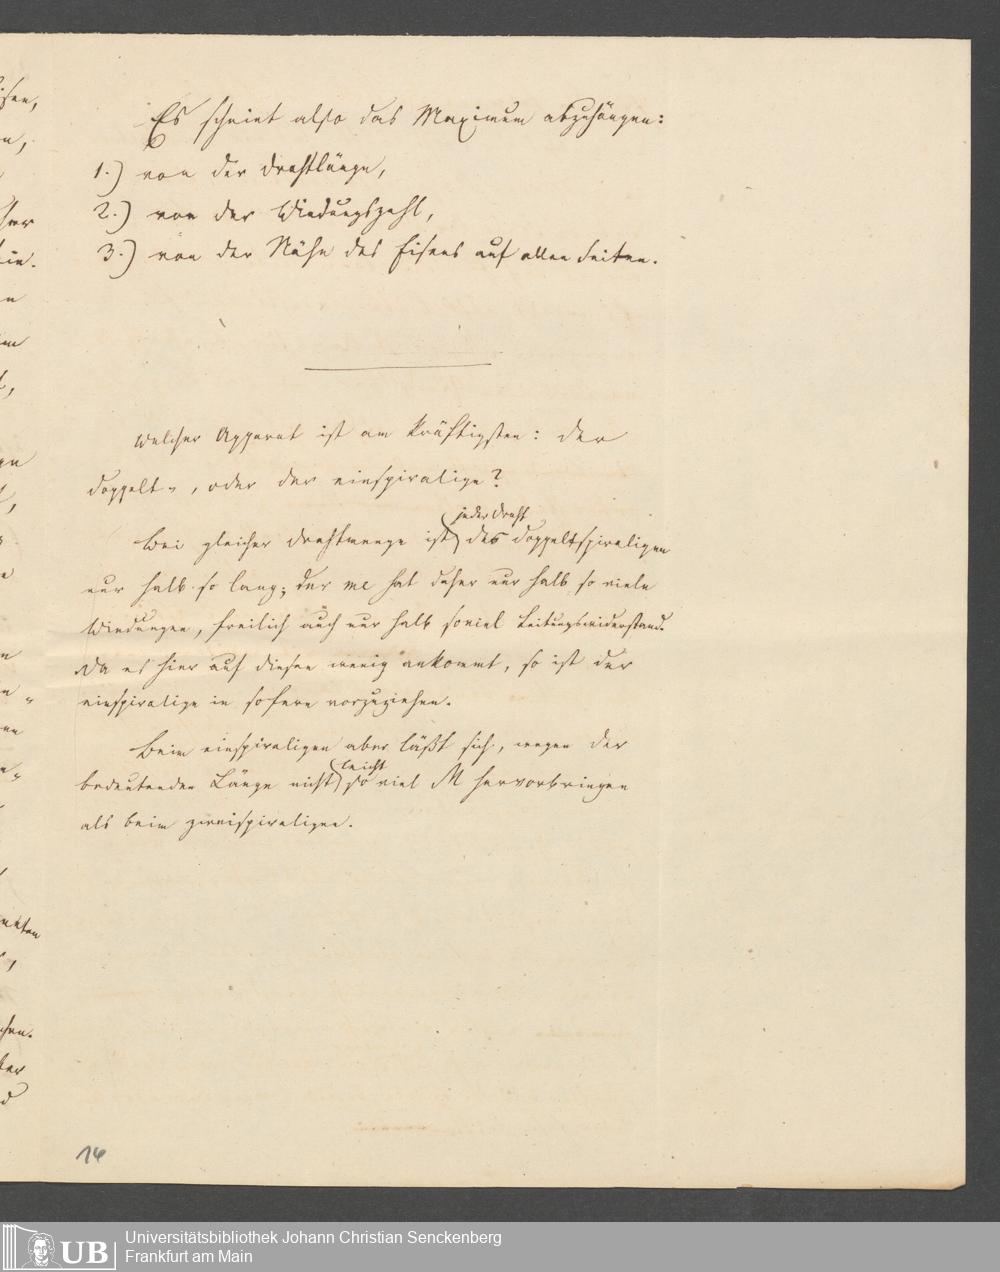 Es scheint also das Maximum abzuhängen:
1.) von der Drahtlänge,
2.) von der Windungszahl,
3.) von der Nähe des Eisens auf allen Seiten.
Welcher Apparat ist am kräftigsten: der
doppelt-, oder der einspiralige?
jeder Draht
Bei gleicher Drahtmenge ist des doppeltspiraligen
nur halb so lang; der hat daher nur halb so viele
Windungen, freilich auch nur halb soviel Leitungswiderstand.
Da es hier auf diesen wenig ankommt, so ist der
einspiralige in sofern vorzuziehen.
Beim einspiraligen aber läßt sich, wegen der
leicht
bedeutenden Länge nicht so viel M hervorbringen
als beim zweispiraligen.
14
UB
Universitätsbibliothek Johann Christian Senckenberg
Frankfurt am Main